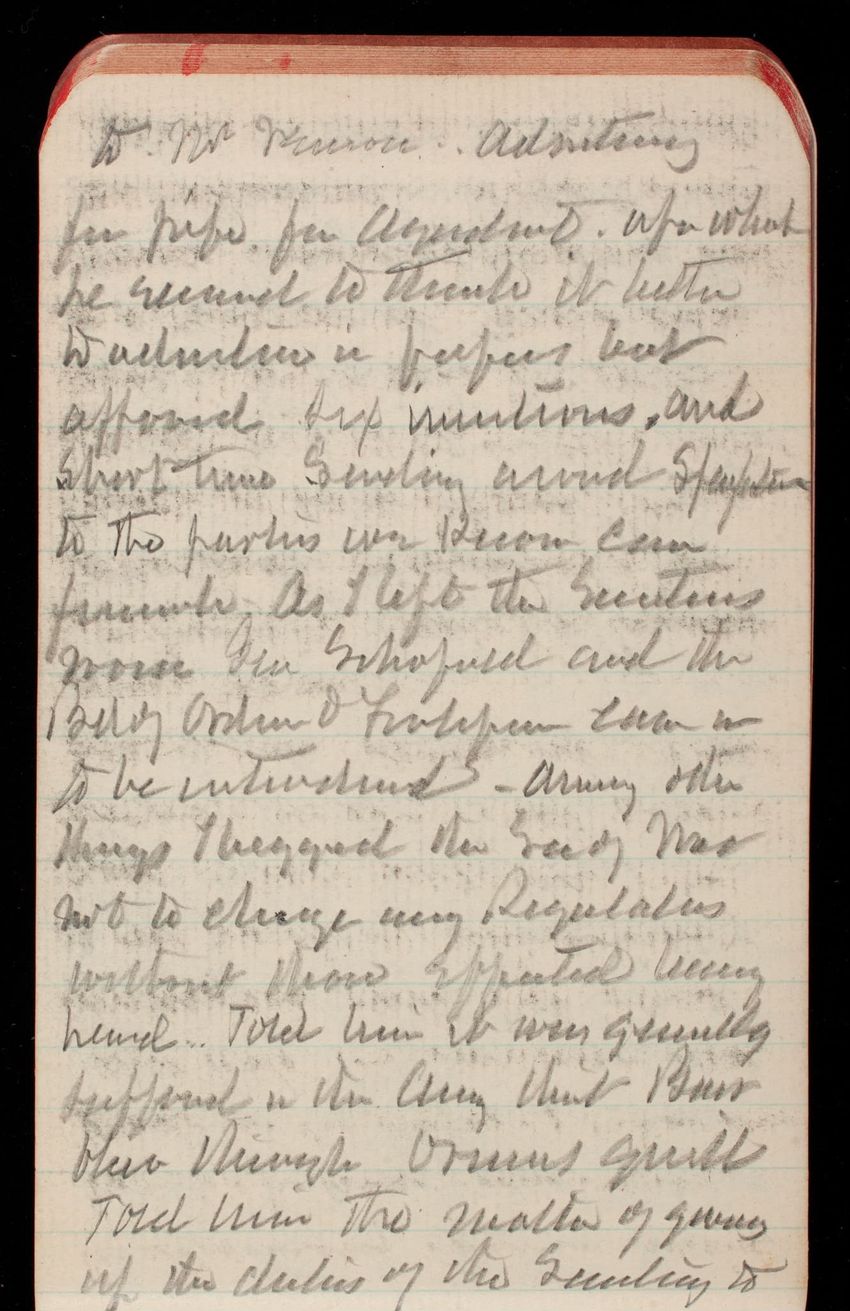 to Mr Vernon. Advertising
for pipe for Aqueduct. upon what
he seemed to think it better
to advertise in papers but
affond six insertions, and
Short time Sending around
to the parties we know can
furnish. As I left the Secretarys
room Gen Schofield and the
Bd of Ord and Fortification came in
to be introduced - Among other
things I begged the Secy of War
not to change any Regulations
without those affected being
heard.. Told him it was generally
supposed in the Army that Barr
blew through quill
Told him the matter of giving
up the duties of the Secretary to